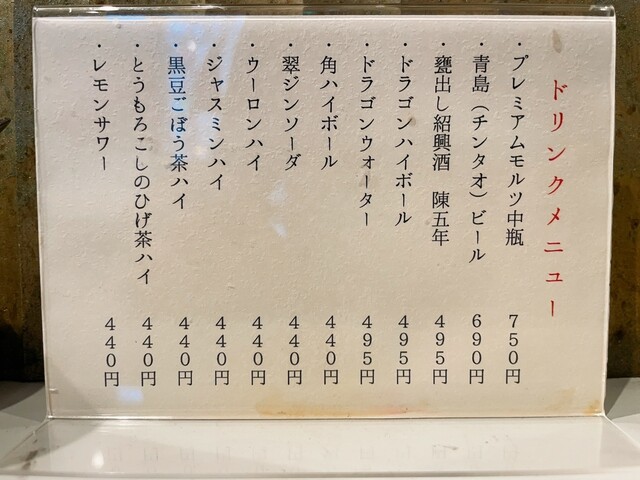 ドリンクメニュー
・プレミアムモルツ中瓶 750円
・青島(チンタオ)ビール 690円
・甕出し紹興酒 陳五年 495円
・ドラゴンハイボール 495円
・ドラゴンウォーター 495円
・角ハイボール 440円
・翠ジンソーダ 440円
・ウーロンハイ 440円
・ジャスミンハイ 440円
・黒豆ごぼう茶ハイ 440円
・とうもろこしのひげ茶ハイ 440円
・レモンサワー 440円